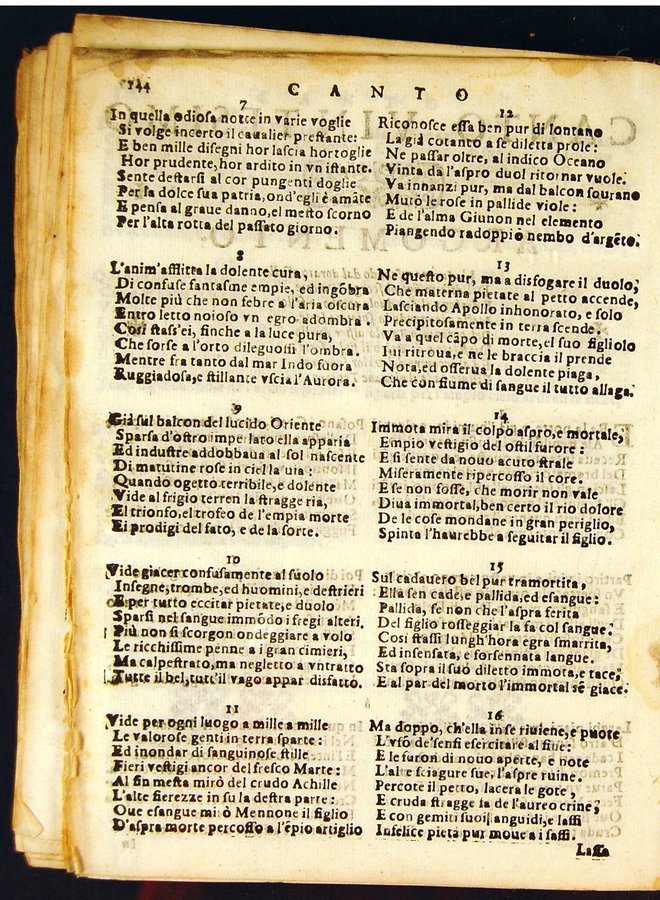 144
CANTO
7
In quella odiosa notte in varie voglie
Si volge incerto il caualier prestante:
E ben mille disegni hor lascia hor toglie
Hor prudente, hor ardito in vn istante.
Sente destarsi al cor pungenti doglie
Per la dolce sua patria, ond'egli è amāte
E pensa al graue danno, el mesto scorno
Per l'alta rotta del passato giorno.
8
L'anim'afflitta la dolente cura,
Di confuse fantasme empie, ed ingōbra
Molte più che non febre a l'aria oscura
Entro letto noioso vn egro adombra.
Cosi stass'ei, finche a la luce pura,
Che sorse a l'orto dileguossi l'ombra.
Mentre fra tanto dal mar Indo fuora
Ruggiadosa, e stillante vscia l'Aurora.
9
Già sul balcon del lucido Oriente
Sparsa d'ostro imperlato ella apparia
Ed industre addobbaua al sol nascente
Di matutine rose in ciel la uia:
Quando ogetto terribile, e dolente
Vide al frigio terren la stragge ria,
El trionfo, el trofeo de l'empia morte
Ei prodigi del fato, e de la sorte.
10
Vide giacer confusamente al suolo
Insegne, trombe, ed huomini, e destrieri
E per tutto eccitar pietate, e duolo
Sparsi nel sangue immōdo i fregi alteri.
Più non si scorgon ondeggiare a volo
Le ricchissime penne a i gran cimieri,
Ma calpestrato, ma negletto a vn tratto
Tutte il bel, tutt'il vago appar disfatto.
11
Vide per ogni luogo a mille a mille
Le valorose genti in terra sparte:
Ed inondar di sanguinose stille
Fieri vestigi ancor del fresco Marte:
Al fin mesta mirò del crudo Achille
L'alte fierezze in su la destra parte:
Oue esangue mirò Mennone il figlio
D'aspra morte percosso a l'ēpio artiglio
12
Riconosce essa ben pur di lontano
La già cotanto a se diletta prole:
Ne passar oltre, al indico Oceano
Vinta da l'aspro duol ritornar vuole.
Va innanzi pur, ma dal balcon sourano
Mutò le rose in pallide viole:
E de l'alma Giunon nel elemento
Piangendo radoppiò nembo d'argēto.
13
Ne questo pur, ma a disfogare il duolo,
Che materna pietate al petto accende,
Lasciando Apollo inhonorato, e solo
Precipitosamente in terra scende.
Va a quel cāpo di morte, el suo figliolo
Iui ritroua, e ne le braccia il prende
Nota, ed osserua la dolente piaga,
Che con fiume di sangue il tutto allaga.
14
Immota mira il colpo aspro, e mortale,
Empio vestigio del ostil furore:
E si sente da nouo acuto strale
Miseramente ripercosso il core.
E se non fosse, che morir non vale
Diua immortal, ben certo il rio dolore
De le cose mondane in gran periglio,
Spinta l'haurebbe a seguitar il figlio.
15
Sul cadauero bel pur tramortita,
Ella sen cade, e pallida, ed esangue:
Pallida, se non che l'aspra ferita
Del figlio rosseggiar la fa col sangue.
Cosi stassi lungh'hora egra smarrita,
Ed insensata, e forsennata langue.
Sta sopra il suo diletto immota, e tace,
E al par del morto l'immortal sē giace.
16
Ma doppo, ch'ella in se riuiene, e puote
L'vso de'sensi esercitare al fine:
E le furon di nouo aperte, e note
L'alte sciagure sue, l'aspre ruine.
Percote il petto, lacera le gote,
E cruda stragge fa de l'aureo crine,
E con gemiti suoi languidi, e lassi
Infelice pietà pur moue a i sassi.
Lassa